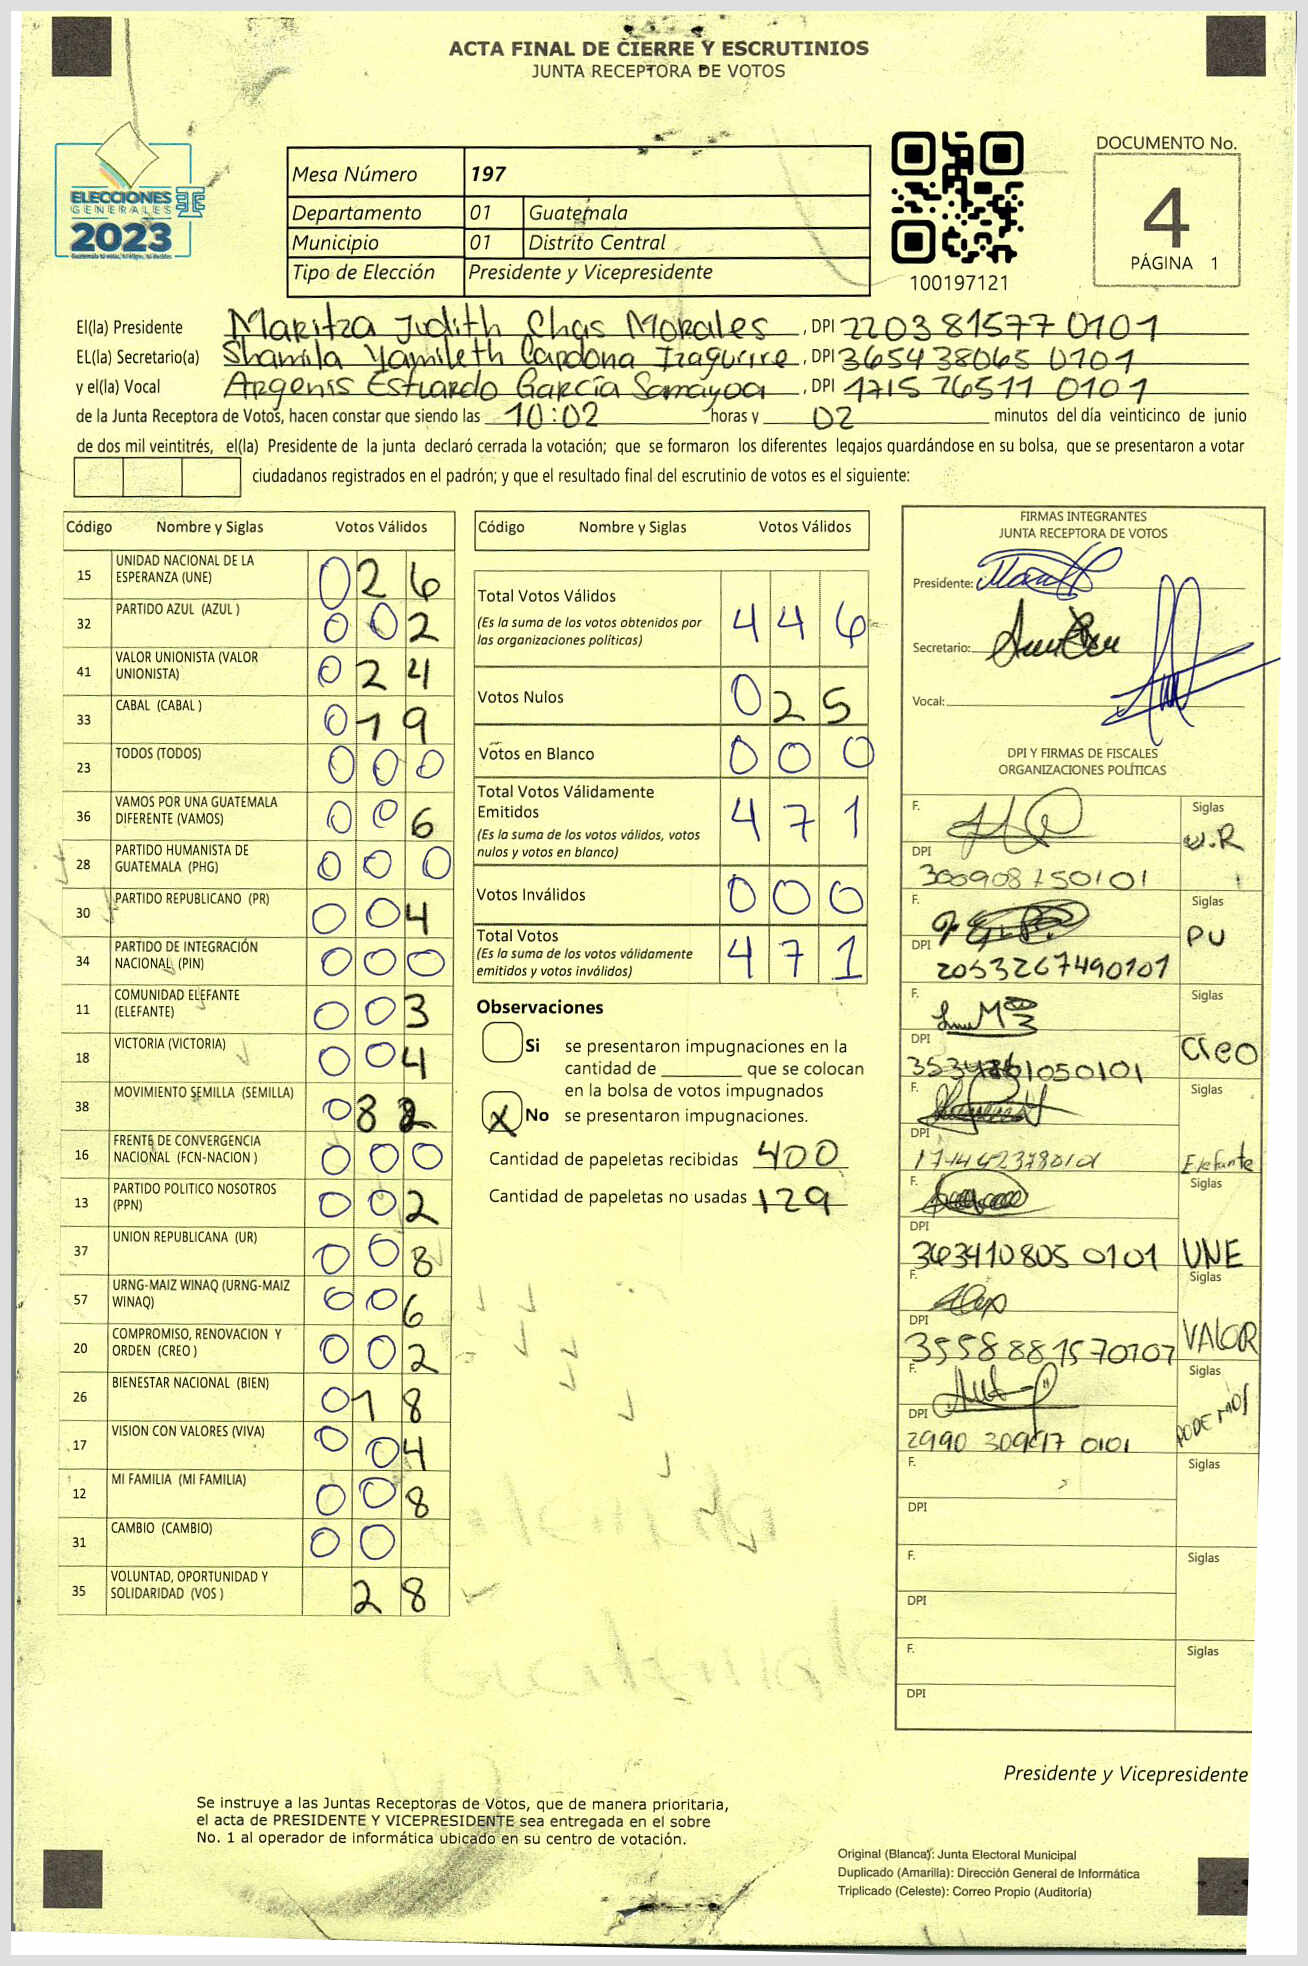 ACTA FINAL DE CIERRE Y ESCRUTINIOS
JUNTA RECEPTORA DE VOTOS
ELECCIONES
GENERALES
2023
Mesa Número 197
Departamento 01 Guatemala
Municipio 01 Distrito Central
Tipo de Elección Presidente y Vicepresidente
100197121
DOCUMENTO No.
4
PÁGINA 1
El(la) Presidente Maritza Judith Chas Morales, DPI 2203815770101
EL(la) Secretario(a) Shamila Yamileth Cardona Izaguirre, DPI 3654380650101
y el(la) Vocal Argenis Estuardo García Samayoa, DPI 1715765110101
de la Junta Receptora de Votos, hacen constar que siendo las 10:02 horas y 02 minutos del día veinticinco de junio
de dos mil veintitrés, el(la) Presidente de la junta declaró cerrada la votación; que se formaron los diferentes legajos guardándose en su bolsa, que se presentaron a votar
ciudadanos registrados en el padrón; y que el resultado final del escrutinio de votos es el siguiente:
Código Nombre y Siglas Votos Válidos
15 UNIDAD NACIONAL DE LA ESPERANZA (UNE) 026
32 PARTIDO AZUL (AZUL ) 002
41 VALOR UNIONISTA (VALOR UNIONISTA) 024
33 CABAL (CABAL ) 019
23 TODOS (TODOS) 000
36 VAMOS POR UNA GUATEMALA DIFERENTE (VAMOS) 006
28 PARTIDO HUMANISTA DE GUATEMALA (PHG) 000
30 PARTIDO REPUBLICANO (PR) 004
34 PARTIDO DE INTEGRACIÓN NACIONAL (PIN) 000
11 COMUNIDAD ELEFANTE (ELEFANTE) 003
18 VICTORIA (VICTORIA) 004
38 MOVIMIENTO SEMILLA (SEMILLA) 082
16 FRENTE DE CONVERGENCIA NACIONAL (FCN-NACION ) 000
13 PARTIDO POLITICO NOSOTROS (PPN) 002
37 UNION REPUBLICANA (UR) 008
57 URNG-MAIZ WINAQ (URNG-MAIZ WINAQ) 006
20 COMPROMISO, RENOVACION Y ORDEN (CREO ) 002
26 BIENESTAR NACIONAL (BIEN) 018
17 VISION CON VALORES (VIVA) 004
12 MI FAMILIA (MI FAMILIA) 008
31 CAMBIO (CAMBIO) 00
35 VOLUNTAD, OPORTUNIDAD Y SOLIDARIDAD (VOS ) 28
Código Nombre y Siglas Votos Válidos
Total Votos Válidos 446
(Es la suma de los votos obtenidos por
las organizaciones políticas)
Votos Nulos 025
Votos en Blanco 000
Total Votos Válidamente
Emitidos 471
(Es la suma de los votos válidos, votos
nulos y votos en blanco)
Votos Inválidos 000
Total Votos 471
(Es la suma de los votos válidamente
emitidos y votos inválidos)
Observaciones
Si se presentaron impugnaciones en la
cantidad de ________ que se colocan
en la bolsa de votos impugnados
X No se presentaron impugnaciones.
Cantidad de papeletas recibidas 400
Cantidad de papeletas no usadas 129
FIRMAS INTEGRANTES
JUNTA RECEPTORA DE VOTOS
Presidente:
Secretario:
Vocal:
DPI Y FIRMAS DE FISCALES
ORGANIZACIONES POLÍTICAS
F. Siglas
U.R
DPI
300908750101
F. Siglas
PU
DPI
2053267490101
F. Siglas
Creo
DPI
F. Siglas
Elefante
DPI
F. Siglas
UNE
DPI
3634108050101
F. Siglas
VALOR
DPI
F. Siglas
PODEMOS
DPI
F. Siglas
DPI
F. Siglas
DPI
F. Siglas
DPI
Presidente y Vicepresidente
Se instruye a las Juntas Receptoras de Votos, que de manera prioritaria,
el acta de PRESIDENTE Y VICEPRESIDENTE sea entregada en el sobre
No. 1 al operador de informática ubicado en su centro de votación.
Original (Blanca): Junta Electoral Municipal
Duplicado (Amarilla): Dirección General de Informática
Triplicado (Celeste): Correo Propio (Auditoría)